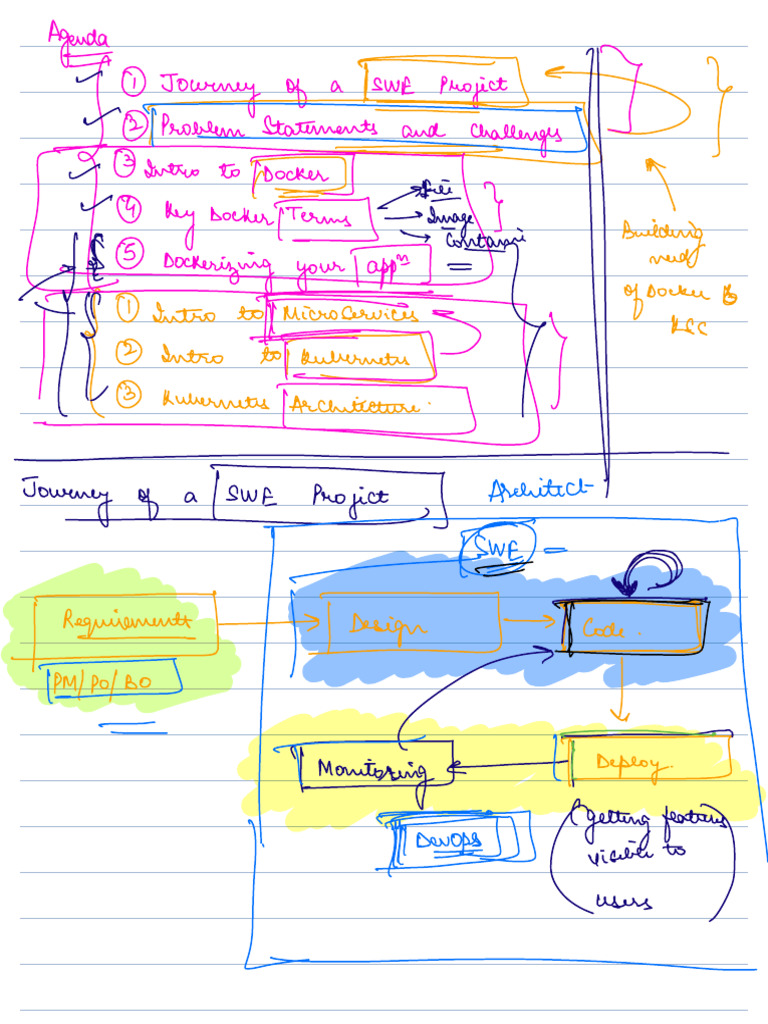 Agenda
① Journey of a SWE Project
② Problem Statements and Challenges
③ Intro to Docker
④ Key Docker Terms
File
Image
⑤ Dockerizing your appⁿ
① Intro to MicroServices
② Intro to Kubernetes
③ Kubernetes Architecture.
Building
need
of Docker &
Journey of a SWE Project
Architect
SWE
Requirements
Design
Code.
PM/PO/BO
Monitoring
Deploy.
DevOps
(getting features
visible to
users